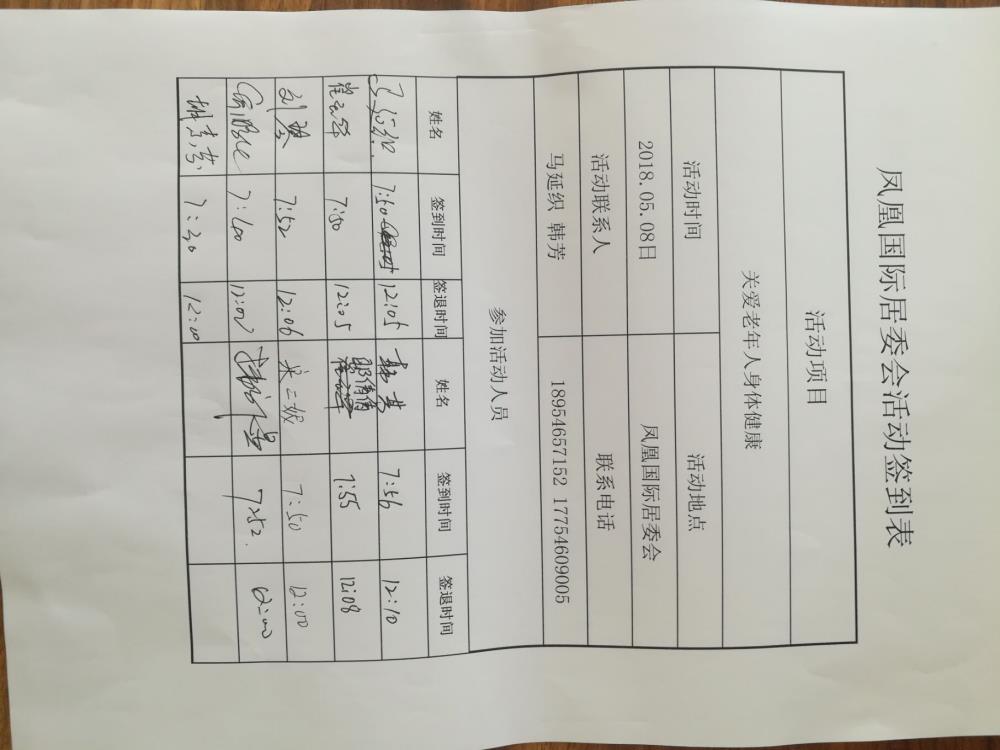 凤凰国际居委会活动签到表
活动项目
关爱老年人身体健康
活动时间 活动地点
2018.05.08日 凤凰国际居委会
活动联系人 联系电话
马延织 韩芳 18954657152 17754609005
参加活动人员
姓名 签到时间 签退时间 姓名 签到时间 签退时间
7:50 12:05 7:56 12:10
7:50 12:05 郭倩倩 7:55 12:08
刘 7:52 12:06 7:50 12:00
7:40 12:00 7:52. 12:00
7:30 12:00